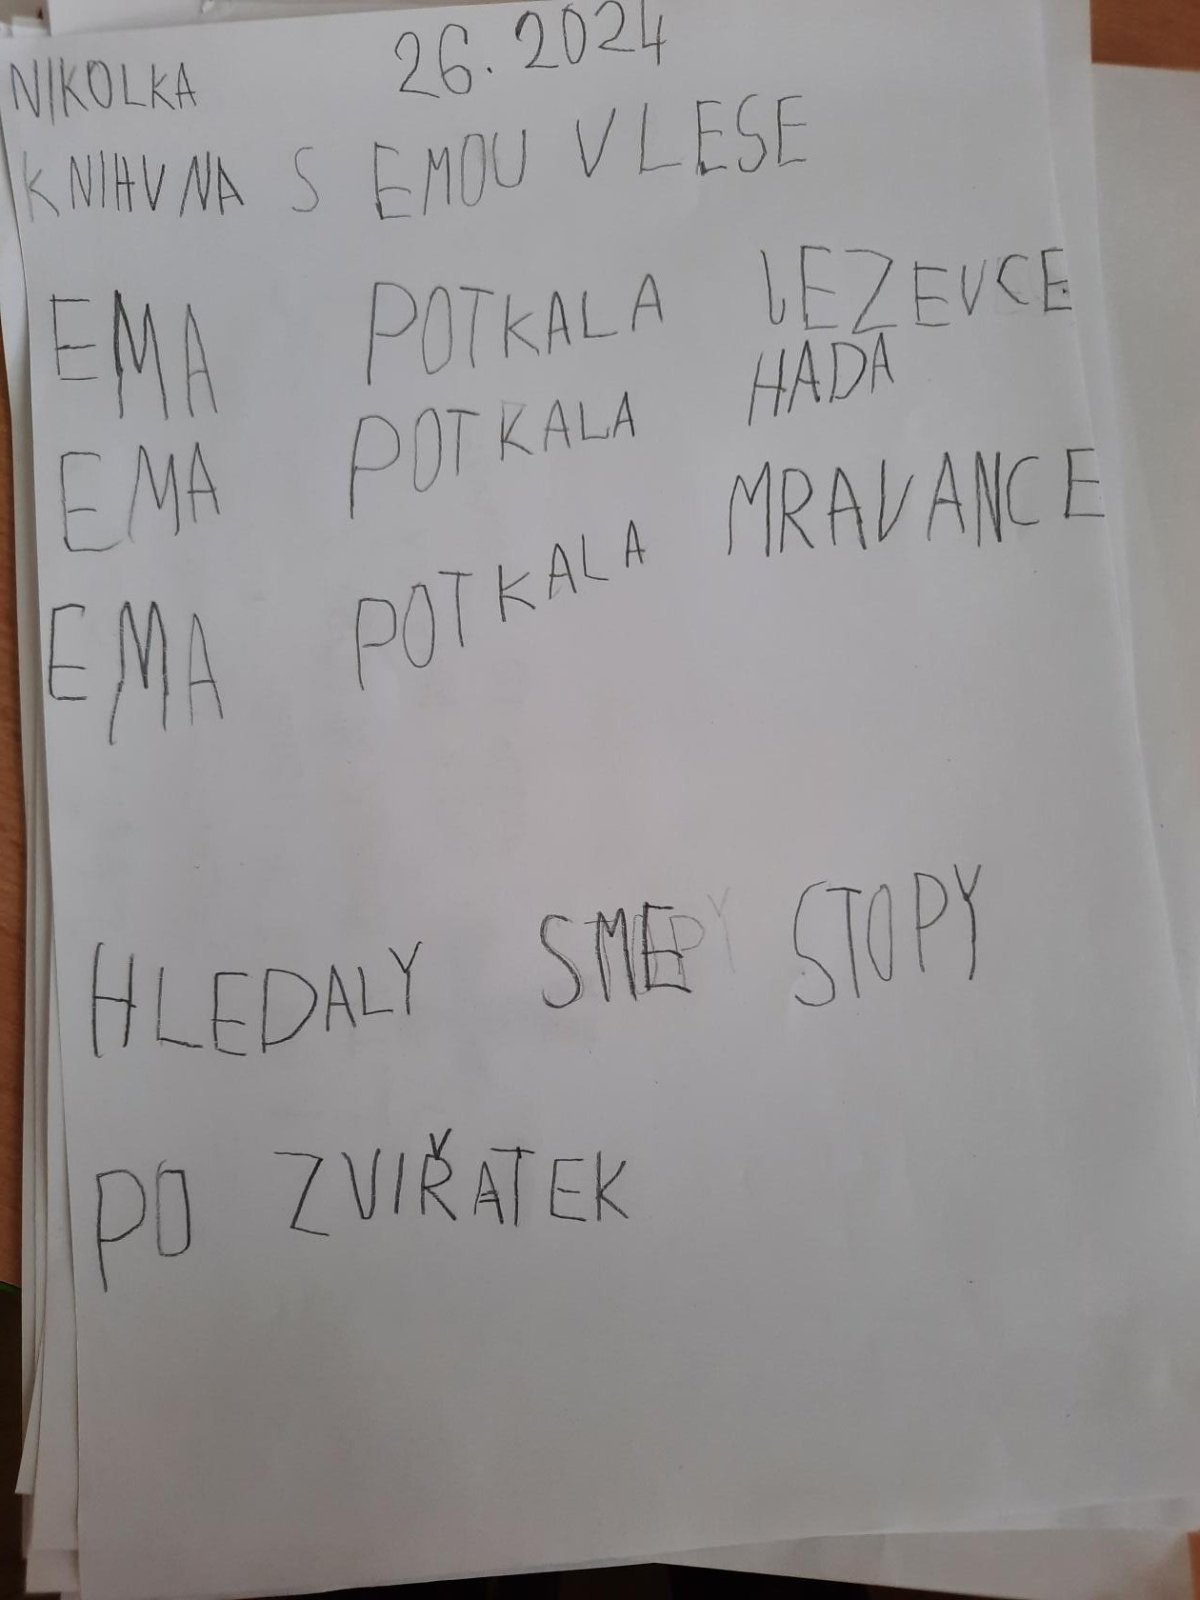 NIKOLKA 26.2024
KNIHVNA S EMOU V LESE
EMA POTKALA JEZEVCE
EMA POTKALA HADA
EMA POTKALA MRAVANCE
HLEDALY SME STOPY
PO ZVIŘATEK